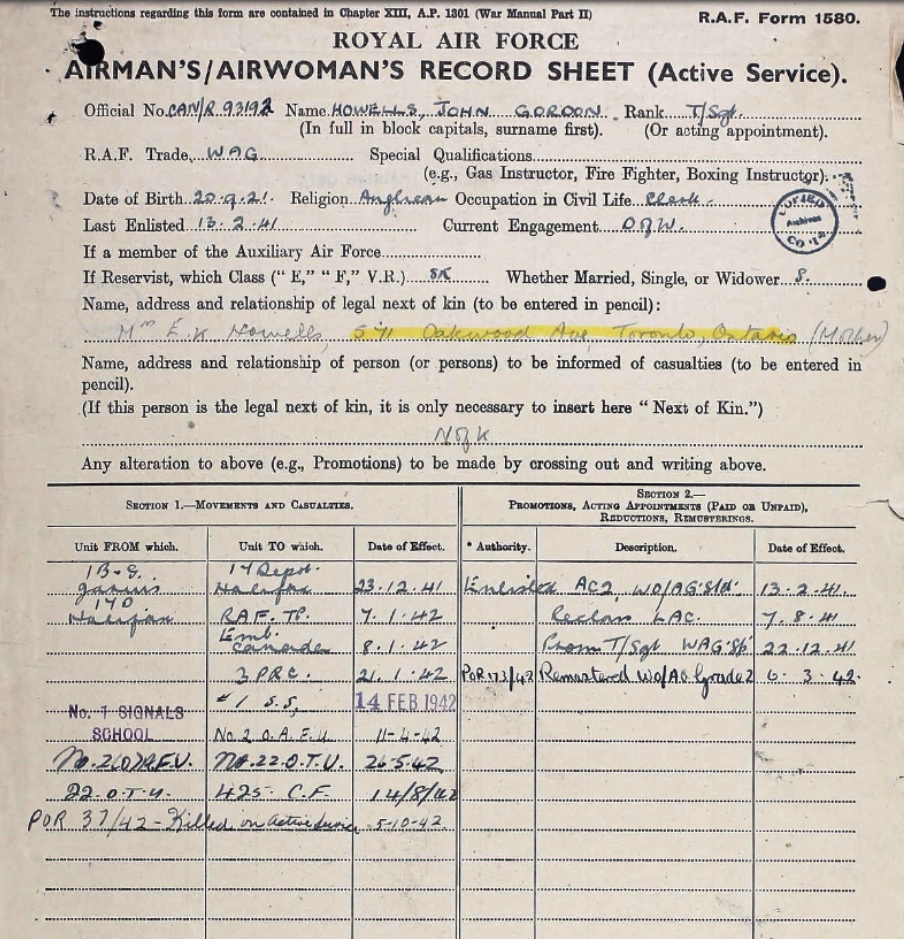 The instructions regarding this form are contained in Chapter XIII, A.P. 1301 (War Manual Part II)
R.A.F. Form 1580.
ROYAL AIR FORCE
AIRMAN'S/AIRWOMAN'S RECORD SHEET (Active Service).
Official No. CAN/R 93192 Name HOWELLS, JOHN GORDON Rank T/Sgt.
(In full in block capitals, surname first). (Or acting appointment).
R.A.F. Trade WAG Special Qualifications
(e.g., Gas Instructor, Fire Fighter, Boxing Instructor).
Date of Birth 20.9.21. Religion Anglican Occupation in Civil Life Clerk.
COPIED Archives
Last Enlisted 13.2.41 Current Engagement D of W.
If a member of the Auxiliary Air Force
If Reservist, which Class ("E," "F," V.R.) SR Whether Married, Single, or Widower S.
Name, address and relationship of legal next of kin (to be entered in pencil):
Mrs E.K Howells, 571 Oakwood Ave, Toronto, Ontario (Mother)
Name, address and relationship of person (or persons) to be informed of casualties (to be entered in
pencil).
(If this person is the legal next of kin, it is only necessary to insert here "Next of Kin.")
N of K
Any alteration to above (e.g., Promotions) to be made by crossing out and writing above.
SECTION 1.—MOVEMENTS AND CASUALTIES. SECTION 2.—
PROMOTIONS, ACTING APPOINTMENTS (PAID OR UNPAID),
REDUCTIONS, REMUSTERINGS.
Unit FROM which. Unit TO which. Date of Effect. * Authority. Description. Date of Effect.
1 Depot.
Halifax 23.12.41 Enlisted AC2 WO/AG 13.2.41
Halifax R.A.F. TP. 7.1.42 Reclass LAC. 7.8.41
Emb. Canada 8.1.42 Prom T/Sgt WAG 22.12.41
3 PRC. 21.1.42 POR 172/42 Remustered WO/AG Grade 2 6.3.42.
# 1 S.S, 14 FEB 1942
No. 1 SIGNALS
SCHOOL No. 2 11-4-42
No. 22. O.T.U. 26.5.42
22. O.T.U. 425- C.F. 14/8/42
POR 37/42 - Killed on Active Service 5-10-42.